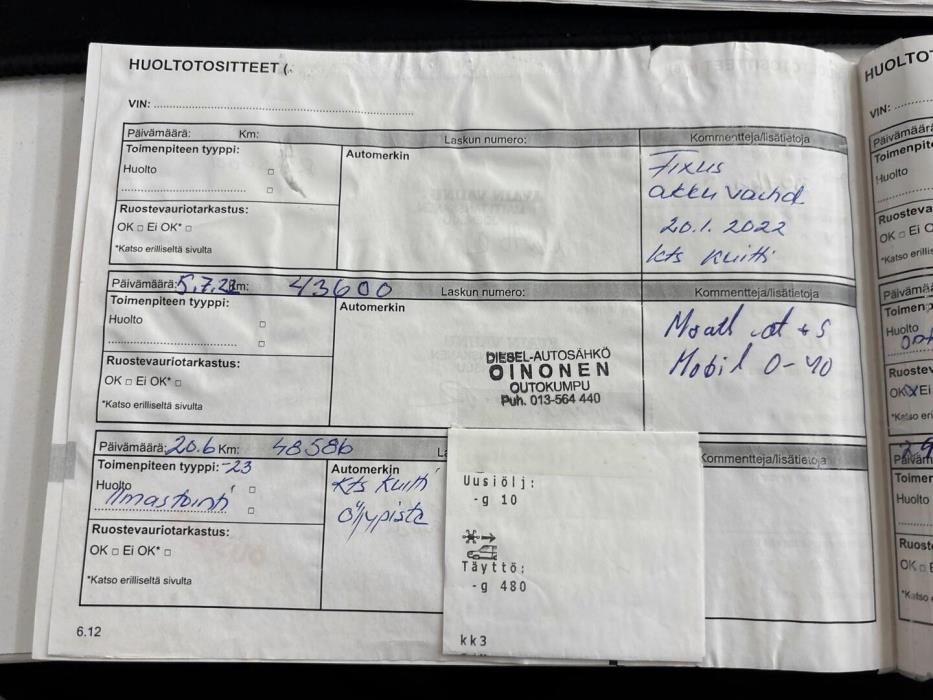 HUOLTOTOSITTEET (.
VIN:
Päivämäärä: Km: Laskun numero: Kommentteja/lisätietoja
Toimenpiteen tyyppi:
Huolto
Automerkin
Ruostevauriotarkastus:
OK □ Ei OK* □
*Katso erilliseltä sivulta
Fixus
akku vaihd.
20.1.2022
kts kuitti
Päivämäärä: 5,7,22 Km: 43600 Laskun numero: Kommentteja/lisätietoja
Toimenpiteen tyyppi:
Huolto
Automerkin
Ruostevauriotarkastus:
OK □ Ei OK* □
*Katso erilliseltä sivulta
DIESEL-AUTOSÄHKÖ
OINONEN
OUTOKUMPU
Puh. 013-564 440
Mobil 0-40
Päivämäärä: 20.6 Km: 48586 Kommentteja/lisätietoja
Toimenpiteen tyyppi: -23
Huolto
Ilmastointi
Automerkin
kts kuitti
Ruostevauriotarkastus:
OK □ Ei OK* □
*Katso erilliseltä sivulta
Uusiölj:
-g 10
Täyttö:
-g 480
kk3
6.12
HUOLTOT
VIN:
Päivämäärä
Toimenpit
Huolto
Ruosteva
OK □ Ei O
*Katso erillis
Päivämää
Toimen
Huolto
Ruostev
Toimen
Huolto
Ruost